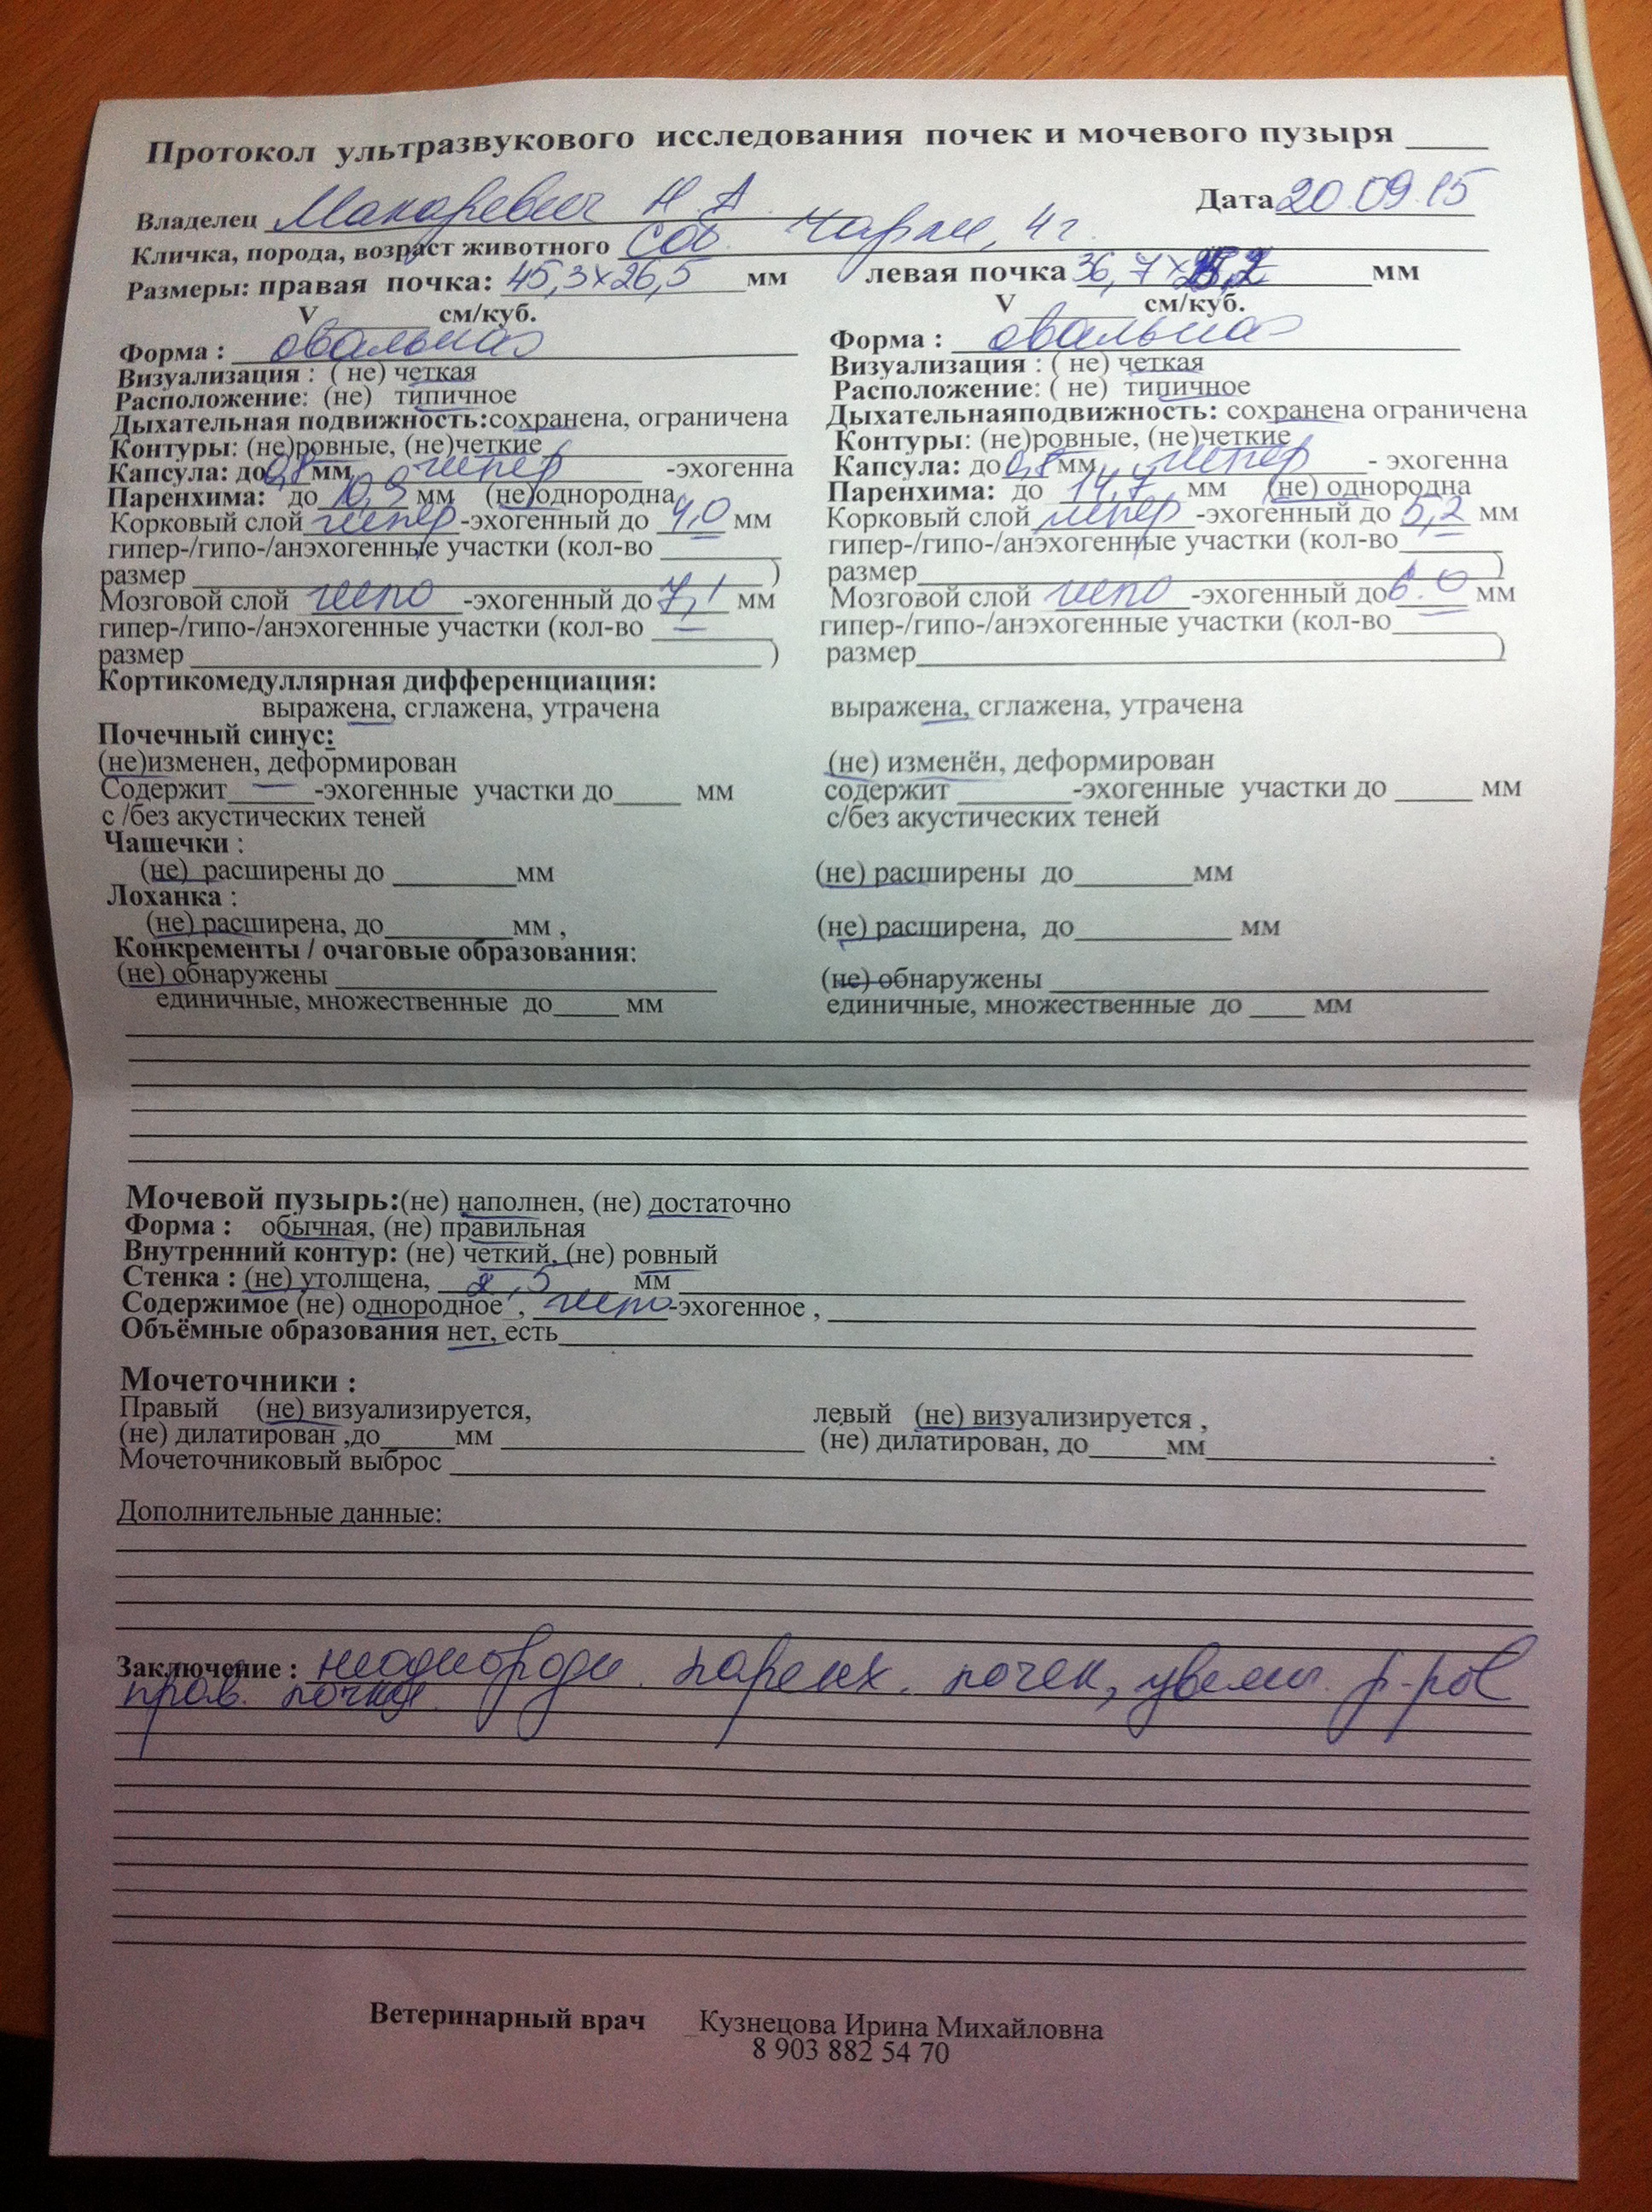 Протокол ультразвукового исследования почек и мочевого пузыря ____
Владелец Макаревич Н А Дата 20.09.15
Кличка, порода, возраст животного Соб. Чарли, 4 г.
Размеры: правая почка: 45,3×26,5 мм левая почка 36,7× мм
V ______ см/куб. V ______ см/куб.
Форма : овальная Форма : овальная
Визуализация : ( не) четкая Визуализация : ( не) четкая
Расположение: (не) типичное Расположение: ( не) типичное
Дыхательная подвижность:сохранена, ограничена Дыхательнаяподвижность: сохранена ограничена
Контуры: (не)ровные, (не)четкие Контуры: (не)ровные, (не)четкие
Капсула: до 0,8 мм, гипер -эхогенна Капсула: до 0,8 мм, гипер - эхогенна
Паренхима: до 10,9 мм (не)однородна Паренхима: до 14,7 мм (не) однородна
Корковый слой гипер -эхогенный до 4,0 мм Корковый слой гипер -эхогенный до 5,2 мм
гипер-/гипо-/анэхогенные участки (кол-во ______ гипер-/гипо-/анэхогенные участки (кол-во ______
размер ______ ) размер ______ )
Мозговой слой гипо -эхогенный до 7,1 мм Мозговой слой гипо -эхогенный до 6.0 мм
гипер-/гипо-/анэхогенные участки (кол-во — гипер-/гипо-/анэхогенные участки (кол-во ______
размер ______ ) размер ______ )
Кортикомедуллярная дифференциация:
выражена, сглажена, утрачена выражена, сглажена, утрачена
Почечный синус:
(не)изменен, деформирован (не) изменён, деформирован
Содержит — -эхогенные участки до_____ мм содержит ______-эхогенные участки до _____ мм
с /без акустических теней с/без акустических теней
Чашечки :
(не) расширены до ______мм (не) расширены до______мм
Лоханка :
(не) расширена, до______мм , (не) расширена, до______ мм
Конкременты / очаговые образования:
(не) обнаружены ______ (не) обнаружены ______
единичные, множественные до_____ мм единичные, множественные до ____ мм
Мочевой пузырь:(не) наполнен, (не) достаточно
Форма : обычная, (не) правильная
Внутренний контур: (не) четкий, (не) ровный
Стенка : (не) утолщена, 2,5 мм
Содержимое (не) однородное , гипо-эхогенное ,
Объёмные образования нет, есть
Мочеточники :
Правый (не) визуализируется, левый (не) визуализируется ,
(не) дилатирован ,до_____мм ______ (не) дилатирован, до_____мм______.
Мочеточниковый выброс
Дополнительные данные:
Заключение : неоднородн. паренх. почек, увелич. р-ров
прав. почки.
Ветеринарный врач _Кузнецова Ирина Михайловна
8 903 882 54 70